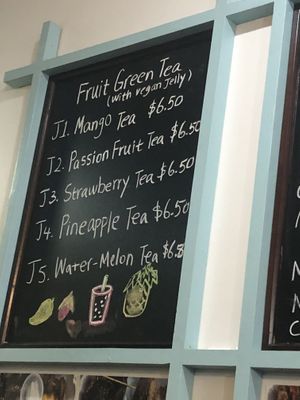 Fruit Green Tea
(with vegan Jelly)
J1. Mango Tea $6.50
J2. Passion Fruit Tea $6.50
J3. Strawberry Tea $6.50
J4. Pineapple Tea $6.50
J5. Water-Melon Tea